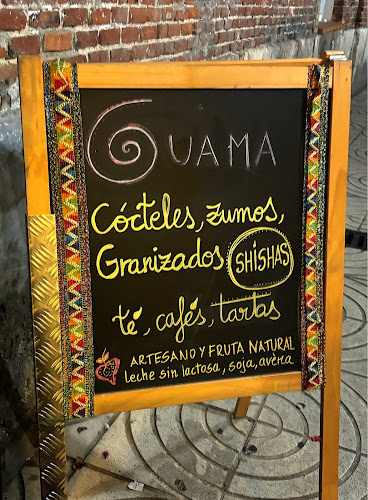 GUAMA
Cócteles, zumos,
Granizados SHISHAS
té, cafés, tartas
ARTESANO Y FRUTA NATURAL
leche sin lactosa, soja, avena